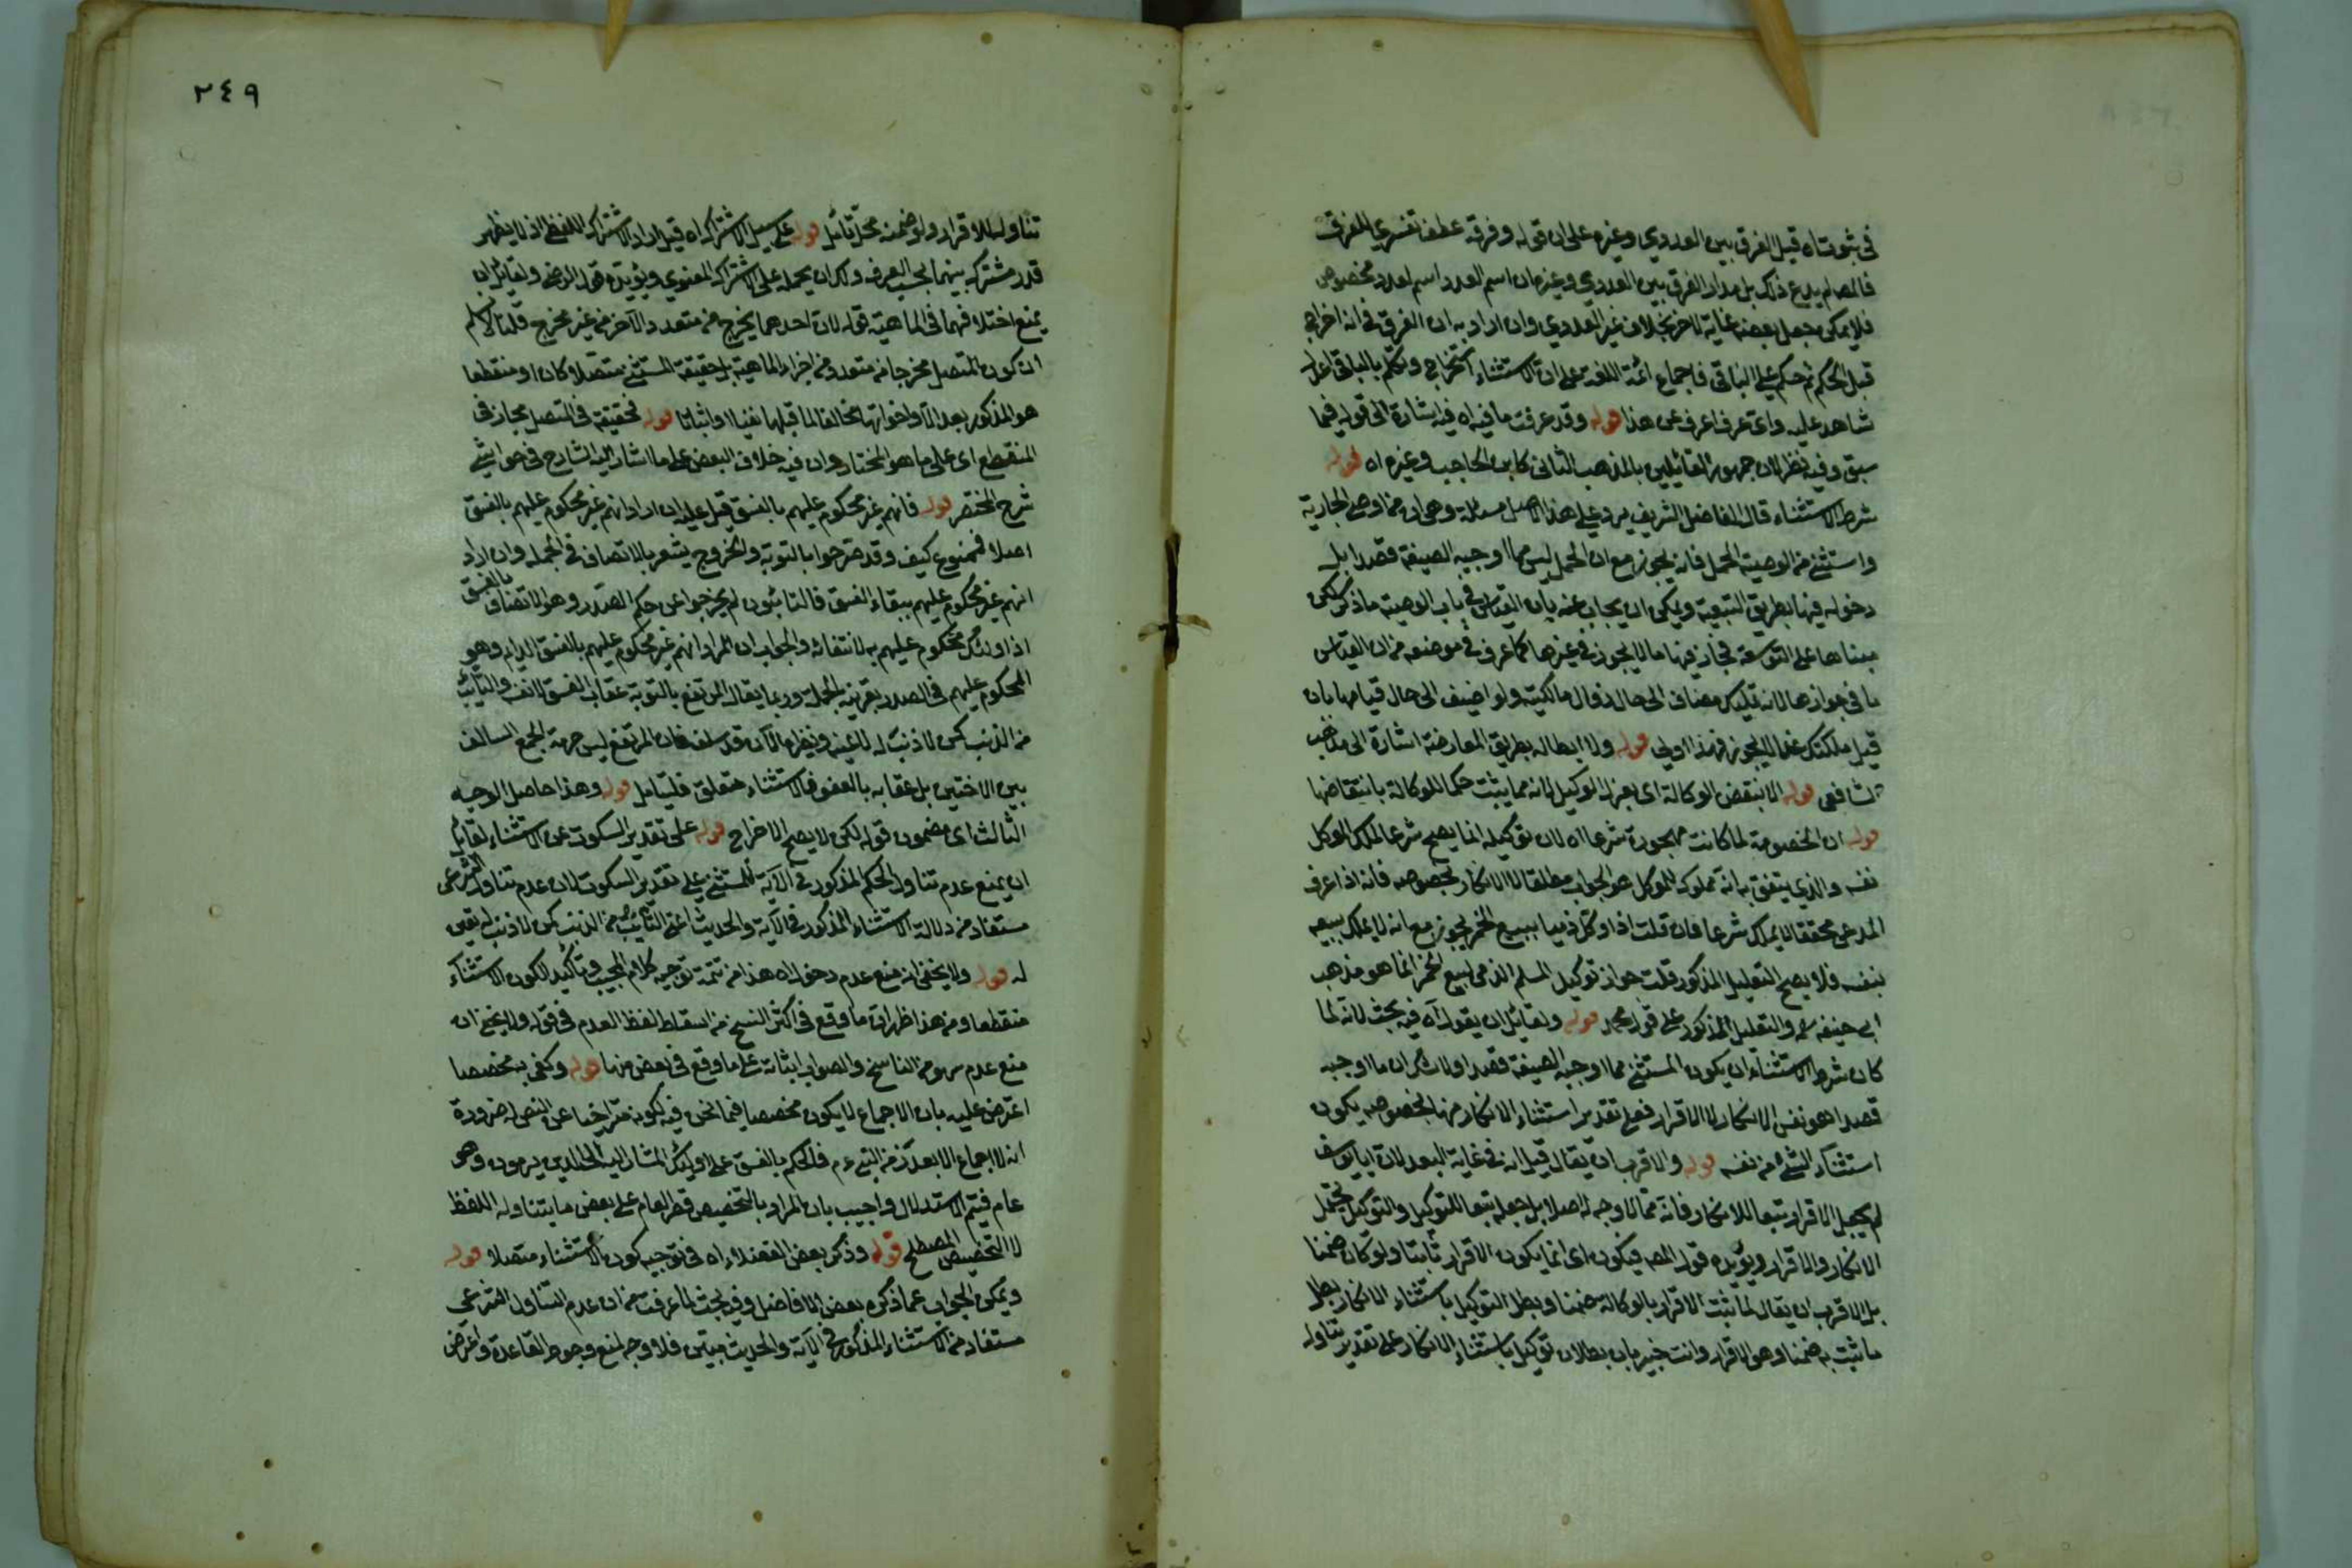 في ثبوتاه قيل الفرق بين العددي وغيره على ان قوله وفرقه عطف تفسيري للفرق
فالمصا لم يدع ذلك بل مدار الفرق بين العددي وغيره ان اسم العدد اسم لعدد مخصوص
فلا يمكن جعل بعضه غاية لاخر بخلاف غير العددي وان اراد به ان الفرق في انه اخراج
قبل الحكم ثم حكم على الباقي فاجماع ائمة اللغة على ان الاستثناء استخراج وتكلم بالباقي اعدل
شاهد عليه واى عرف اعرف من هذا قوله وقد عرفت ما فيه اه فيه اشارة الى قوله فيما
سبق وفيه نظر لان جمهور القائلين بالمذهب الثاني كابن الحاجب وغيره اه قوله
شرط الاستثناء قال الفاضل الشريف يرد على هذا الاصل مسئلة وهي ان من اوصى الجارية
واستثنى من الوصية الحمل فانه يجوز مع ان الحمل ليس مما اوجبه الصيغة قصدا بل
دخوله فيها بطريق التبعية ويمكن ان يجاب عنه بان القياس في باب الوصية ما ذكر لكن
مبناها على التوسعة فجاز فيها ما لا يجوز في غيرها كما عرف في موضعه من ان القياس
يا في جوازها لانه تمليك مضاف الى حال زوال مالكيته ولو اضيف الى حال قيامها بان
قيل ملكتك غدا لا يجوز فهذا اولى قوله ولا ابطاله بطريق المعارضة اشارة الى مذهب
الشافعي قوله الا بنقض الوكالة اى بعزل الوكيل لانه مما يثبت حكما للوكالة بانتقاضها
قوله ان الخصومة لما كانت مهجورة شرعا اه لان توكيله انما يصح شرعا لملك الموكل
نفسه والذي يتفق به انه مملوك للموكل هو الجواب مطلقا لا الانكار بخصوصه فانه اذا عرف
المدعى محقا لا يملك شرعا فان قلت اذا وكل ذميا ببيع الخمر يجوز مع انه لا يملك بيعه
بنفسه فلا يصح التعليل المذكور قلت جواز توكيل المسلم الذمى لبيع الخمر انما هو مذهب
ابي حنيفه رحمه والتعليل المذكور على قول محمد قوله ولقائل ان يقول اه فيه بحث لانه لما
كان شرط الاستثناء ان يكون المستثنى مما اوجبه الصيغة قصدا ولا شك ان ما اوجبه
قصدا هو نفس الانكار لا الاقرار فعلى تقدير استثناء الانكار منها بخصوصه يكون
استثناء الشئ من نفسه قوله والاقرب ان يقال قيل انه في غاية البعد لان ابا يوسف
لم يجعل الاقرار تبعا للانكار فانه مما لا وجه له اصلا بل جعله تبعا للتوكيل والتوكيل يحتمل
الانكار والاقرار ويؤيده قول المص فيكون اى انما يكون الاقرار ثابتا ولو كان ضمنا
بل الاقرب ان يقال لما ثبت الاقرار بالوكالة ضمنا وبطل التوكيل باستثناء الانكار بطل
ما ثبت به ضمنا وهو الاقرار وانت خبير بان بطلان توكيل باستثناء الانكار على تقدير تناوله
٢٤٩
تناوله للاقرار ولو ضمنه محل تأمل قوله على سبيل الاشتراك اه قيل اراد الاشتراك اللفظي اذ لا يظهر
قدر مشترك بينهما بحسب العرف ولك ان يحمله على الاشتراك المعنوي ويؤيده قول الرضى ولقائل ان
يمنع اختلافهما في الماهية قوله لان احدهما يخرج من متعدد والآخر غير مخرج قلنا لا نسلم
ان كون المتصل مخرجا من متعدد من اجزاء الماهية بل حقيقة المستثنى متصلا كان او منقطعا
هو المذكور بعد الا واخواتها مخالفا لما قبلها نفيا او اثباتا قوله فحقيقة في المتصل مجاز في
المنقطع اى على ما هو المختار وان فيه خلاف البعض على ما اشار اليه الشارح في حواشي
شرح المختصر قوله فانهم غير محكوم عليهم بالفسق قيل عليه ان اراد انهم غير محكوم عليهم بالفسق
اصلا فممنوع كيف وقد صرحوا بالتوبة والخروج يشعر بالاتصاف في الجملة وان اراد
انهم غير محكوم عليهم ببقاء الفسق فالتائبون لم يخرجوا عن حكم الصدر وهو الاتصاف بالفسق
اذ اولئك محكوم عليهم به لا بنفائه والجواب ان المراد انهم غير محكوم عليهم بالفسق الدايم وهو
المحكوم عليهم في الصدر بقرينة الجملة وربما يقال المرتفع بالتوبة عقاب الفسق لا نفسه والتائب
من الذنب كمن لا ذنب له لا عينه ونظيره الا ما قد سلف فان المرتفع ليس حرمة الجمع السالف
بين الاختين بل عقابه بالعفو فالاستثناء متعلق فليتأمل قوله وهذا حاصل الوجه
الثالث اى مضمون قوله لكن لا يصح الاخراج قوله على تقدير السكوت عن الاستثناء لقائل
ان يمنع عدم تناول الحكم المذكور في الآية للمستثنى على تقدير السكوت لان عدم تناول الشرعى
مستفاد من دلالة الاستثناء المذكور في الآية والحديث اعنى التائب من الذنب كمن لا ذنب له يقين
له قوله ولا يخفى ان منع عدم دخوله اه هذا من تتمة توجيه كلام المجيب وتأكيد لكون الاستثناء
منقطعا ومن هذا ظهر ان ما وقع في اكثر النسخ من اسقاط لفظ العدم في قوله ولا يخفى ان
منع عدم سهو من الناسخ والصواب اثباته على ما وقع في بعض منها قوله وكفى به مخصصا
اعترض عليه بان الاجماع لا يكون مخصصا فيما نحن فيه لكونه متراخيا عن النص ضرورة
انه لا اجماع الا بعد زمن النبي ءم فالحكم بالفسق على اولئك المشار اليه الى الذين يرمون وهو
عام فيتم الاستدلال واجيب بان المراد بالتخصيص قصر العام على بعض ما يتناوله اللفظ
لا التخصيص المصطلح قوله وذكر بعض الفضلاء اه في توجيه كون الاستثناء متصلا قوله
ويمكن الجواب عما ذكره بعض الافاضل وفيه بحث لما عرفت من ان عدم التناول الشرعى
مستفاد من الاستثناء المذكور في الآية والحديث مبين فلا وجه لمنع وجود القاعدة واعترض